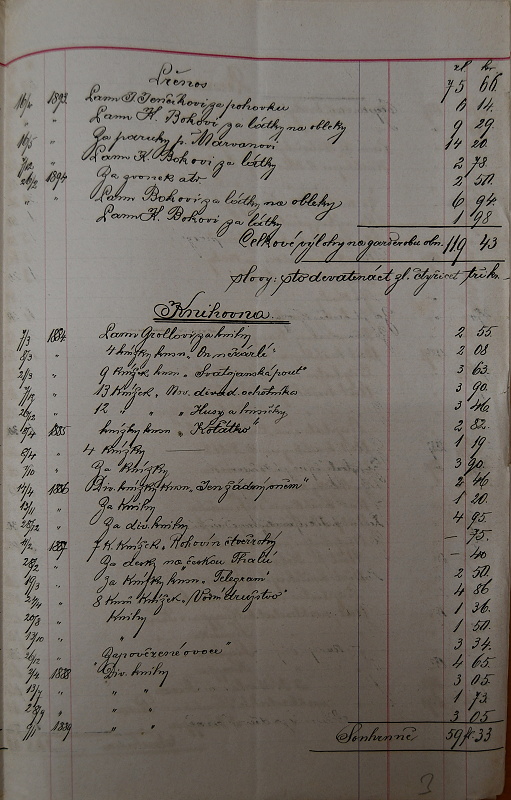 zl. kr.
Přenos 75 66
16/4 1893 Panu J. Jenčíkovi za pohovku 6 14
" " Panu K. Bokovi za látky na obleky 9 29
16/5 " Za paruky p. Marvanovi 14 20
" Panu K. Bokovi za látky 2 78
26/2 1894 Za zvonek atd. 2 50
" " Panu Bokovi za látky na obleky 6 94
Panu K. Bokovi za látky 1 98
Celkové výlohy na garderobu obn. 119 43
slovy: sto devatenáct zl. čtyřicet tři kr.
Knihovna.
7/3 1884 Panu Grollovi za knihy 2 55
8/3 " 4 knížky kmn. "On nežárlí" 2 08
2/3 " 9 Knížek kmn. "Svatojanská pouť" 3 63
" 13 Knížek " div. ochotníka 3 90
" 12 " " Husy a husičky 3 46
1885 knížky kmn. "Koťátko" 2 82
9/4 " 4 Knížky 1 19
7/10 " Za Knížky 3 90
14/4 1886 Div. knížky kmn. "Jen žádný oněm" 2 46
13/11 " Za Knihy 1 20
25/12 " Za div. knihy 4 95
4/2 1887 7 K. Knížek " Rohovín čtverrohý — 75
28/2 " Za desky na českou Thalii — 40
19/3 " Za Knížky kmn. "Telegram" 2 50
24/4 " 8 Kmn Knížek "Vosí družstvo" 4 86
20/8 " Knihy 1 36
13/10 " " 1 50
26/12 " "Zapovězené ovoce" 3 34
2/4 1888 Div. knihy 4 65
13/7 " " " 3 05
28/9 " " " 1 73
1889 " " 3 05
Souhrnně 59 zl. 33